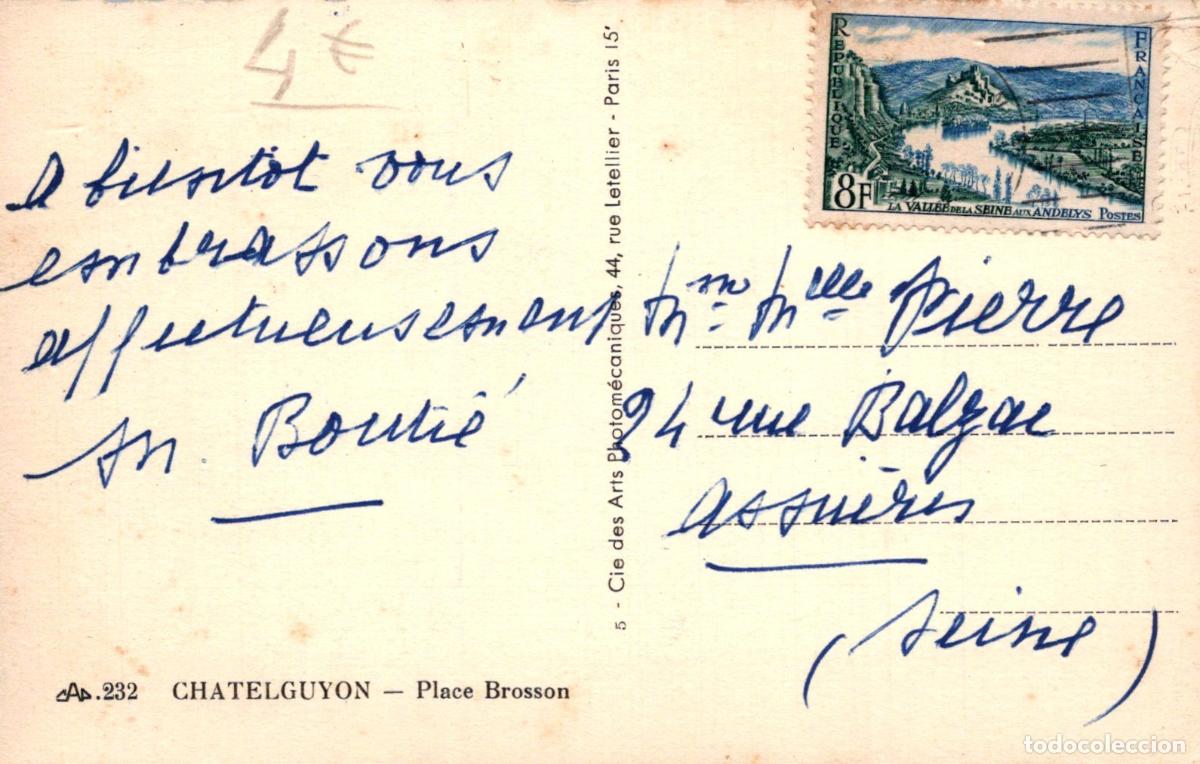 4 €
A bientôt vous
embrassons
affectueusement
M. Boutié
5 - Cie des Arts Photomécaniques, 44, rue Letellier - Paris 15'
RÉPUBLIQUE FRANÇAISE
8F
LA VALLÉE DE LA SEINE AUX ANDELYS POSTES
Mme Mlle Pierre
24 rue Balzac
Asnières
(Seine)
CAP.232 CHATELGUYON — Place Brosson
todocoleccion